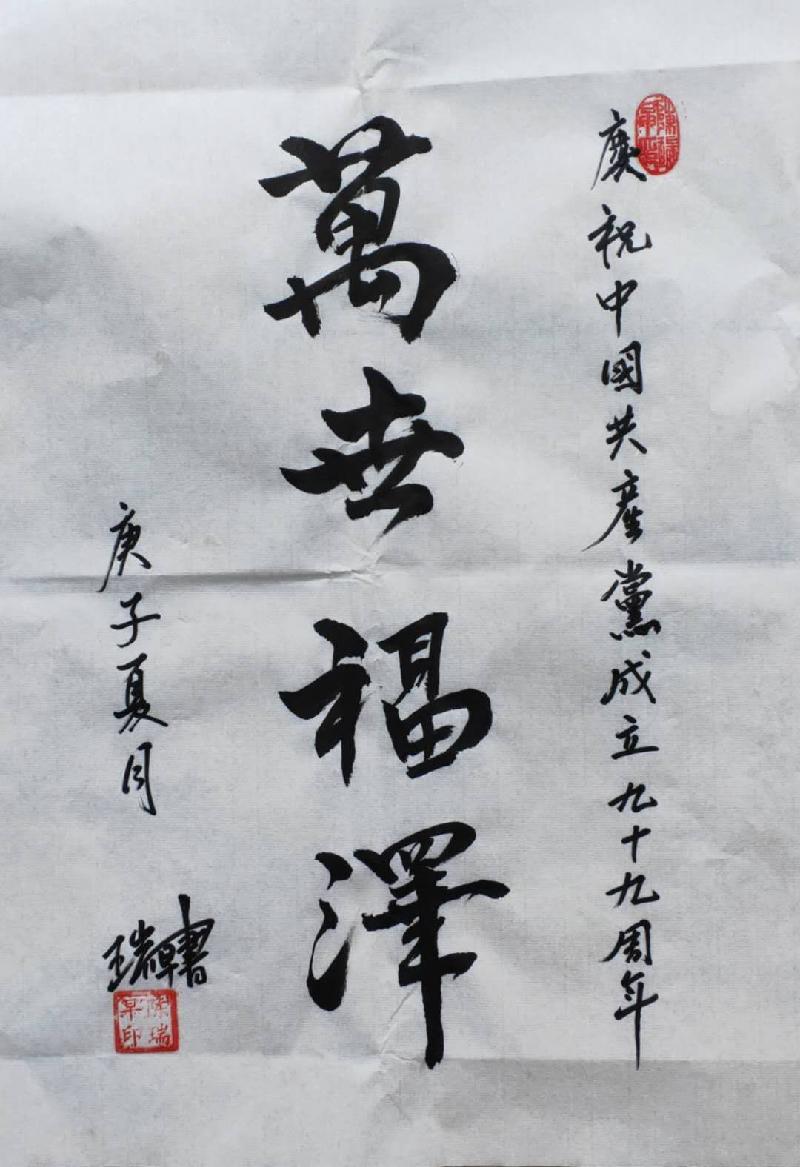 慶祝中國共産黨成立九十九周年
萬世福澤
庚子夏月
瑞
書
陈瑞
印